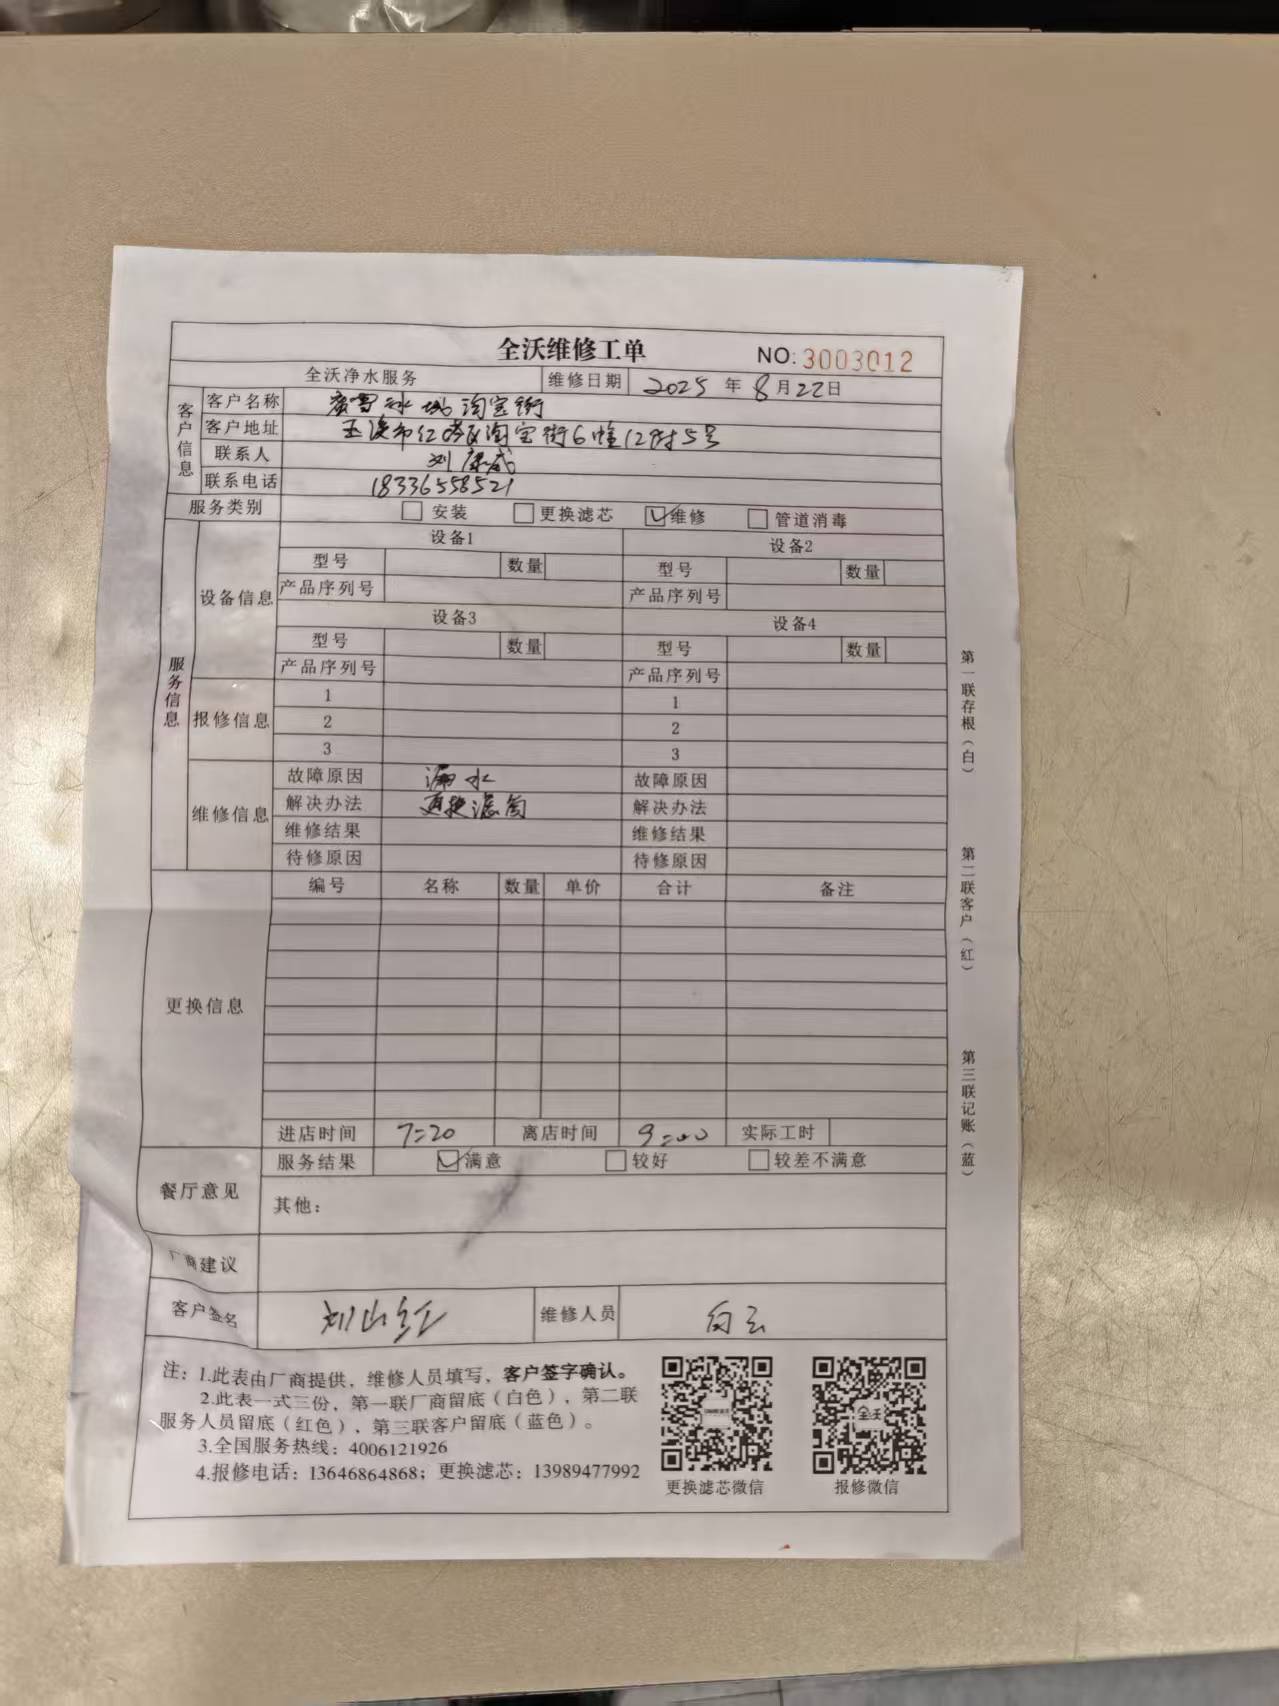 全沃维修工单 NO: 3003012
全沃净水服务 维修日期 2025 年 8 月 22 日
客户信息
客户名称 蜜雪冰城淘宝街
客户地址 玉溪市红塔区淘宝街6幢12附5号
联系人 刘康威
联系电话 18336558521
服务类别 安装 更换滤芯 维修 管道消毒
服务信息
设备信息
设备1 设备2
型号 数量 型号 数量
产品序列号 产品序列号
设备3 设备4
型号 数量 型号 数量
产品序列号 产品序列号
报修信息
1 1
2 2
3 3
维修信息
故障原因 漏水 故障原因
解决办法 更换滤筒 解决办法
维修结果 维修结果
待修原因 待修原因
更换信息
编号 名称 数量 单价 合计 备注
进店时间 7=20 离店时间 9=00 实际工时
餐厅意见
服务结果 满意 较好 较差不满意
其他：
厂商建议
客户签名 刘山红 维修人员 白云
注：1.此表由厂商提供，维修人员填写，客户签字确认。
2.此表一式三份，第一联厂商留底（白色），第二联
服务人员留底（红色），第三联客户留底（蓝色）。
3.全国服务热线：4006121926
4.报修电话：13646864868；更换滤芯：13989477992
更换滤芯微信 报修微信
全沃
第一联存根（白）
第二联客户（红）
第三联记账（蓝）